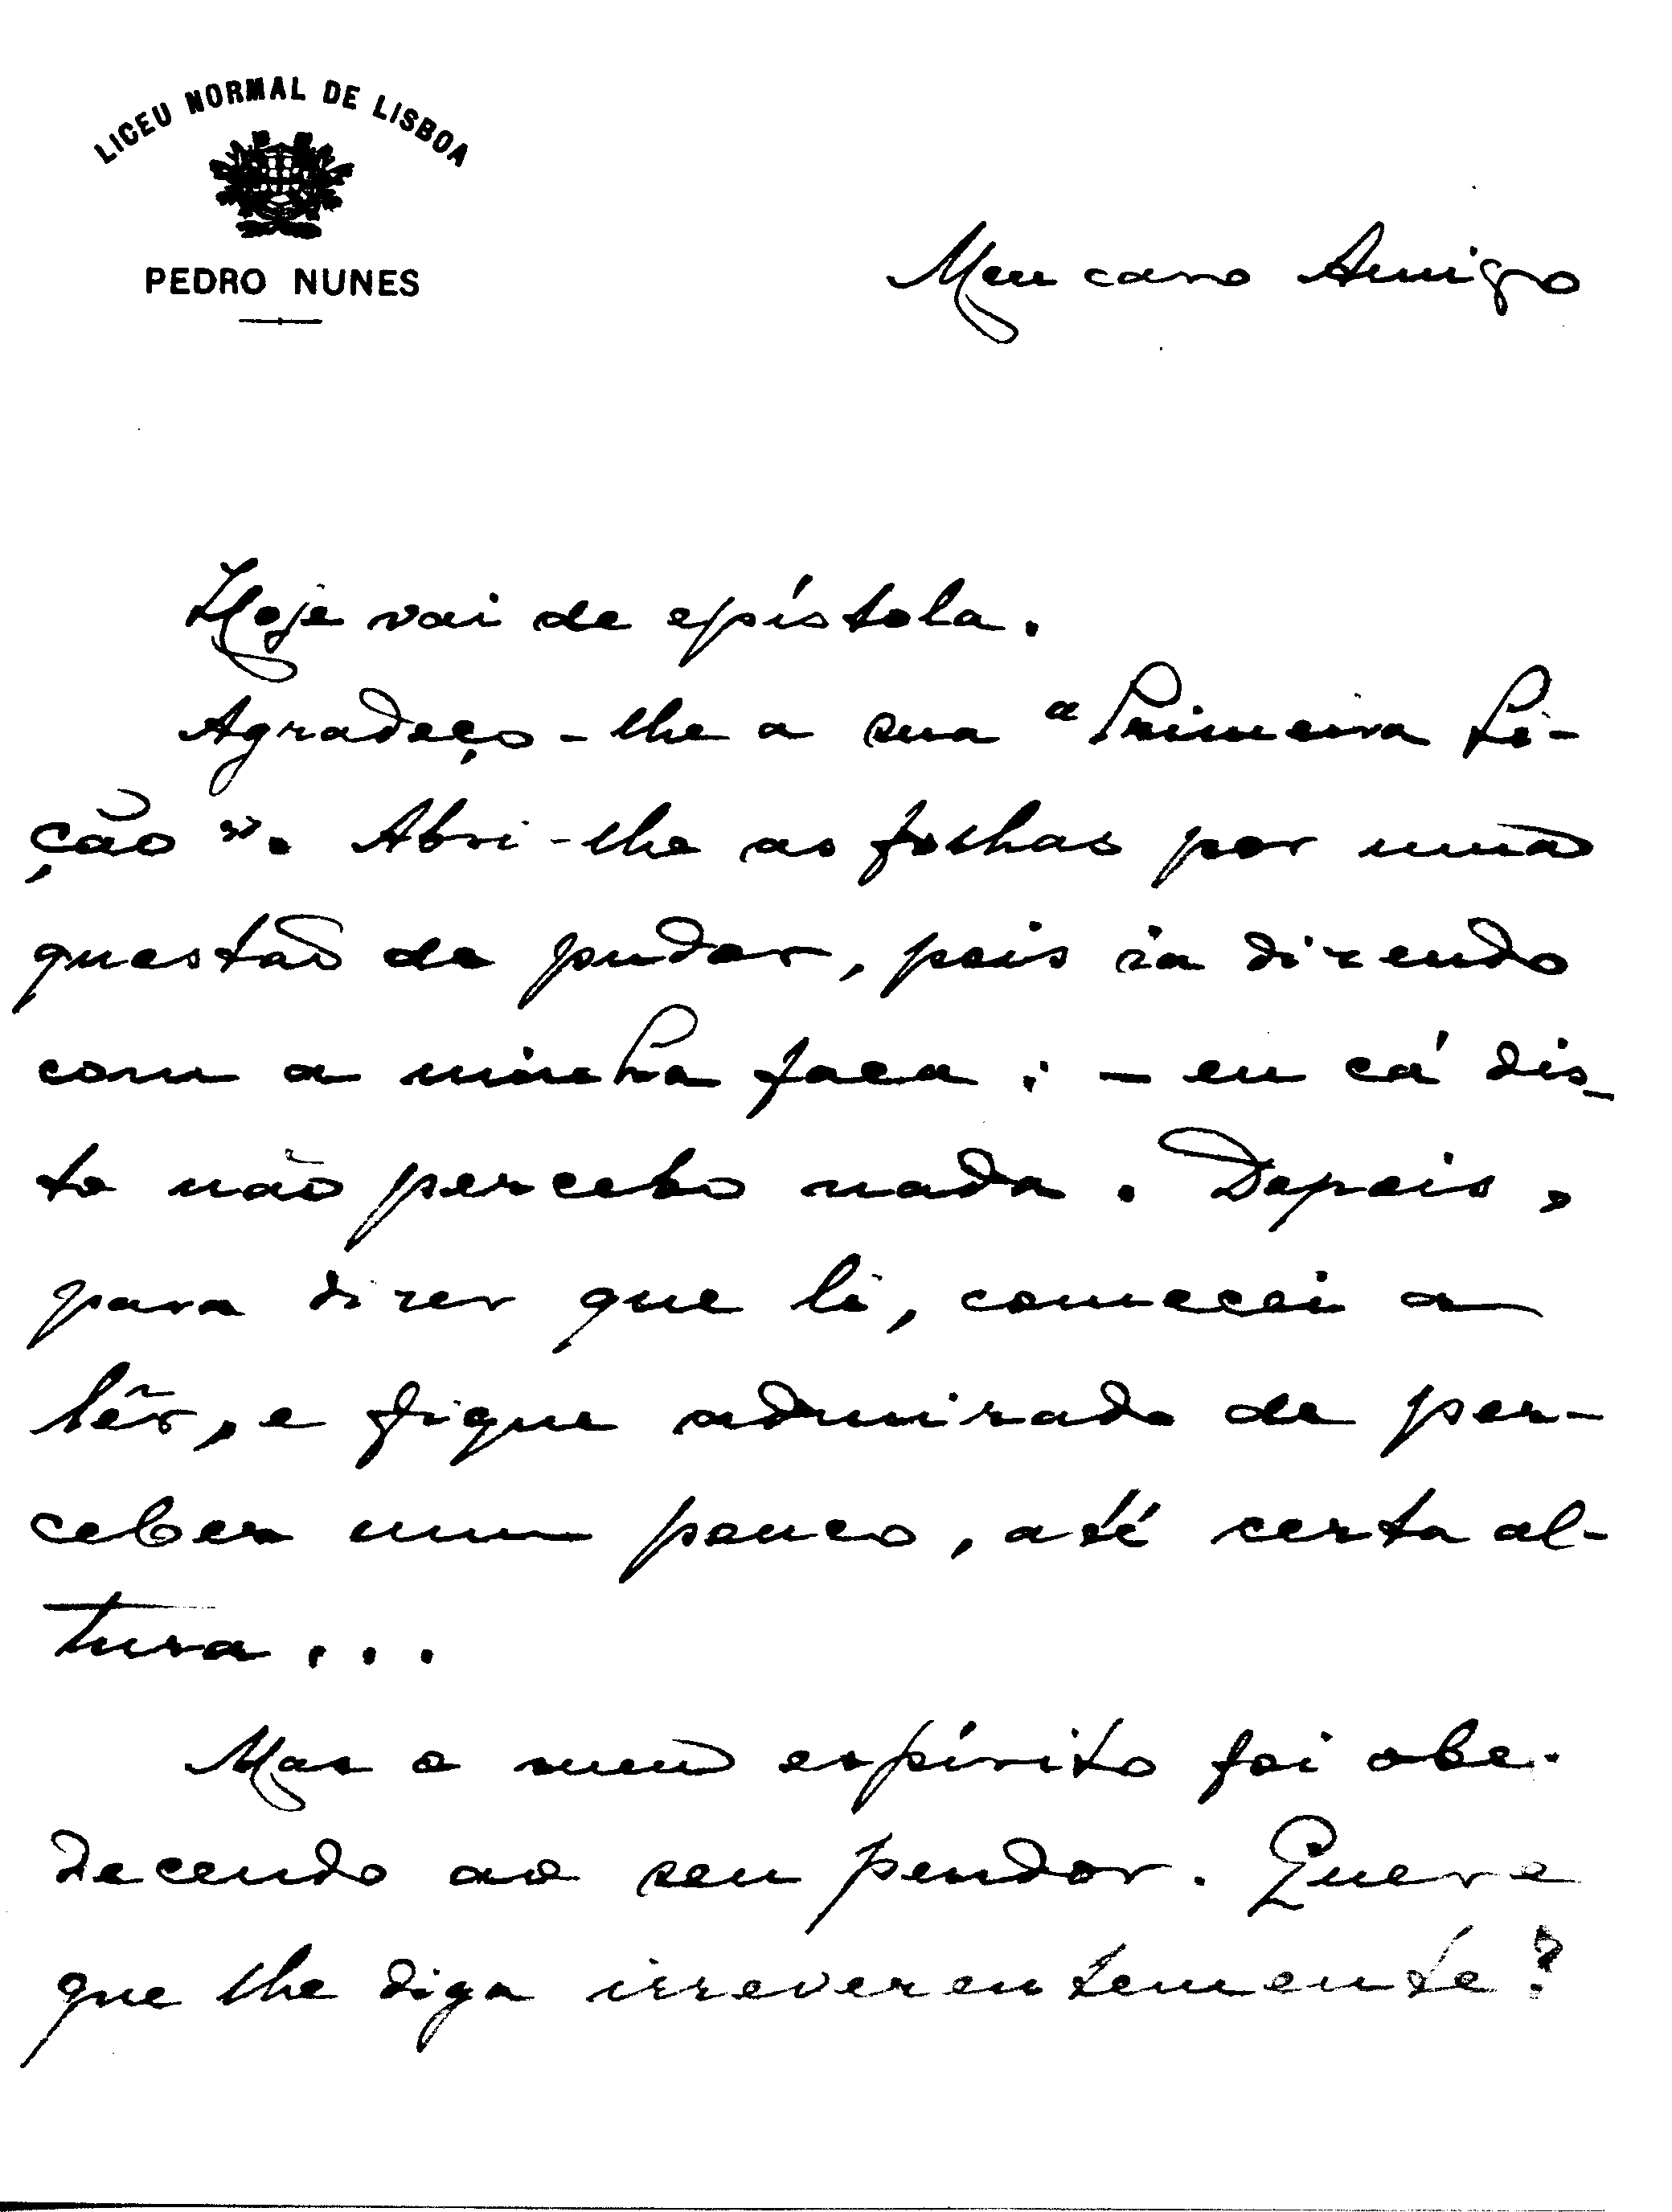 LICEU NORMAL DE LISBOA
PEDRO NUNES
Meu caro Amigo
Hoje vai de epístola.
Agradeço-lhe a sua "Primeira Li-
ção". Abri-lhe as folhas por uma
questão de pudor, pois ia dizendo
com a minha faca: - eu cá dis-
to não percebo nada. Depois,
para dizer que li, comecei a
lêr, e fique admirado de per-
ceber um pouco, até certa al-
tura...
Mas o meu espírito foi obe-
decendo ao seu pendor. Quere
que lhe diga irreverentemente?